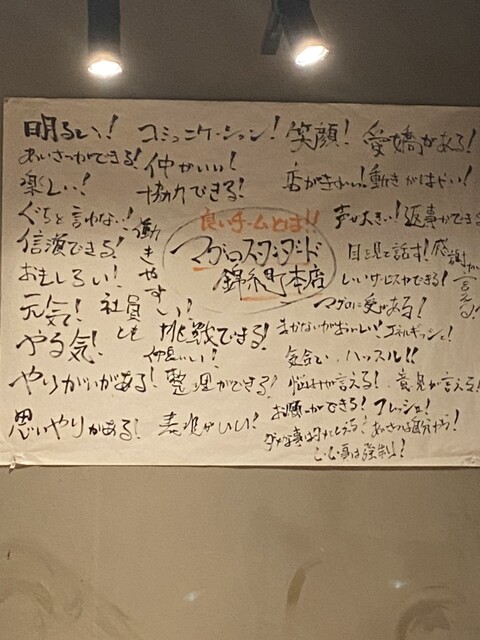 明るい！
コミュニケーション！
笑顔！
愛嬌がある！
あいさつができる！
仲がいい！
楽しい！
協力できる！
店がきれい！
動きがはやい！
良いチームとは!!
ぐちを言わない！
働きやすい！
声が大きい！
返事ができる
信頼できる！
マグロスタンダード
錦糸町本店
目を見て話す！
感謝が言える！
おもしろい！
いいサービスができる！
元気！
社員とも仲良い！
挑戦できる！
マグロに愛がある！
まかないがおいしい！
エネルギッシュ！
やる気！
気合い
ハッスル!!
やりがいがある！
整理ができる！
悩みが言える！
意見が言える！
お願いができる！
フレッシュ！
思いやりがある！
素直がいい！
あいさつは自分から！